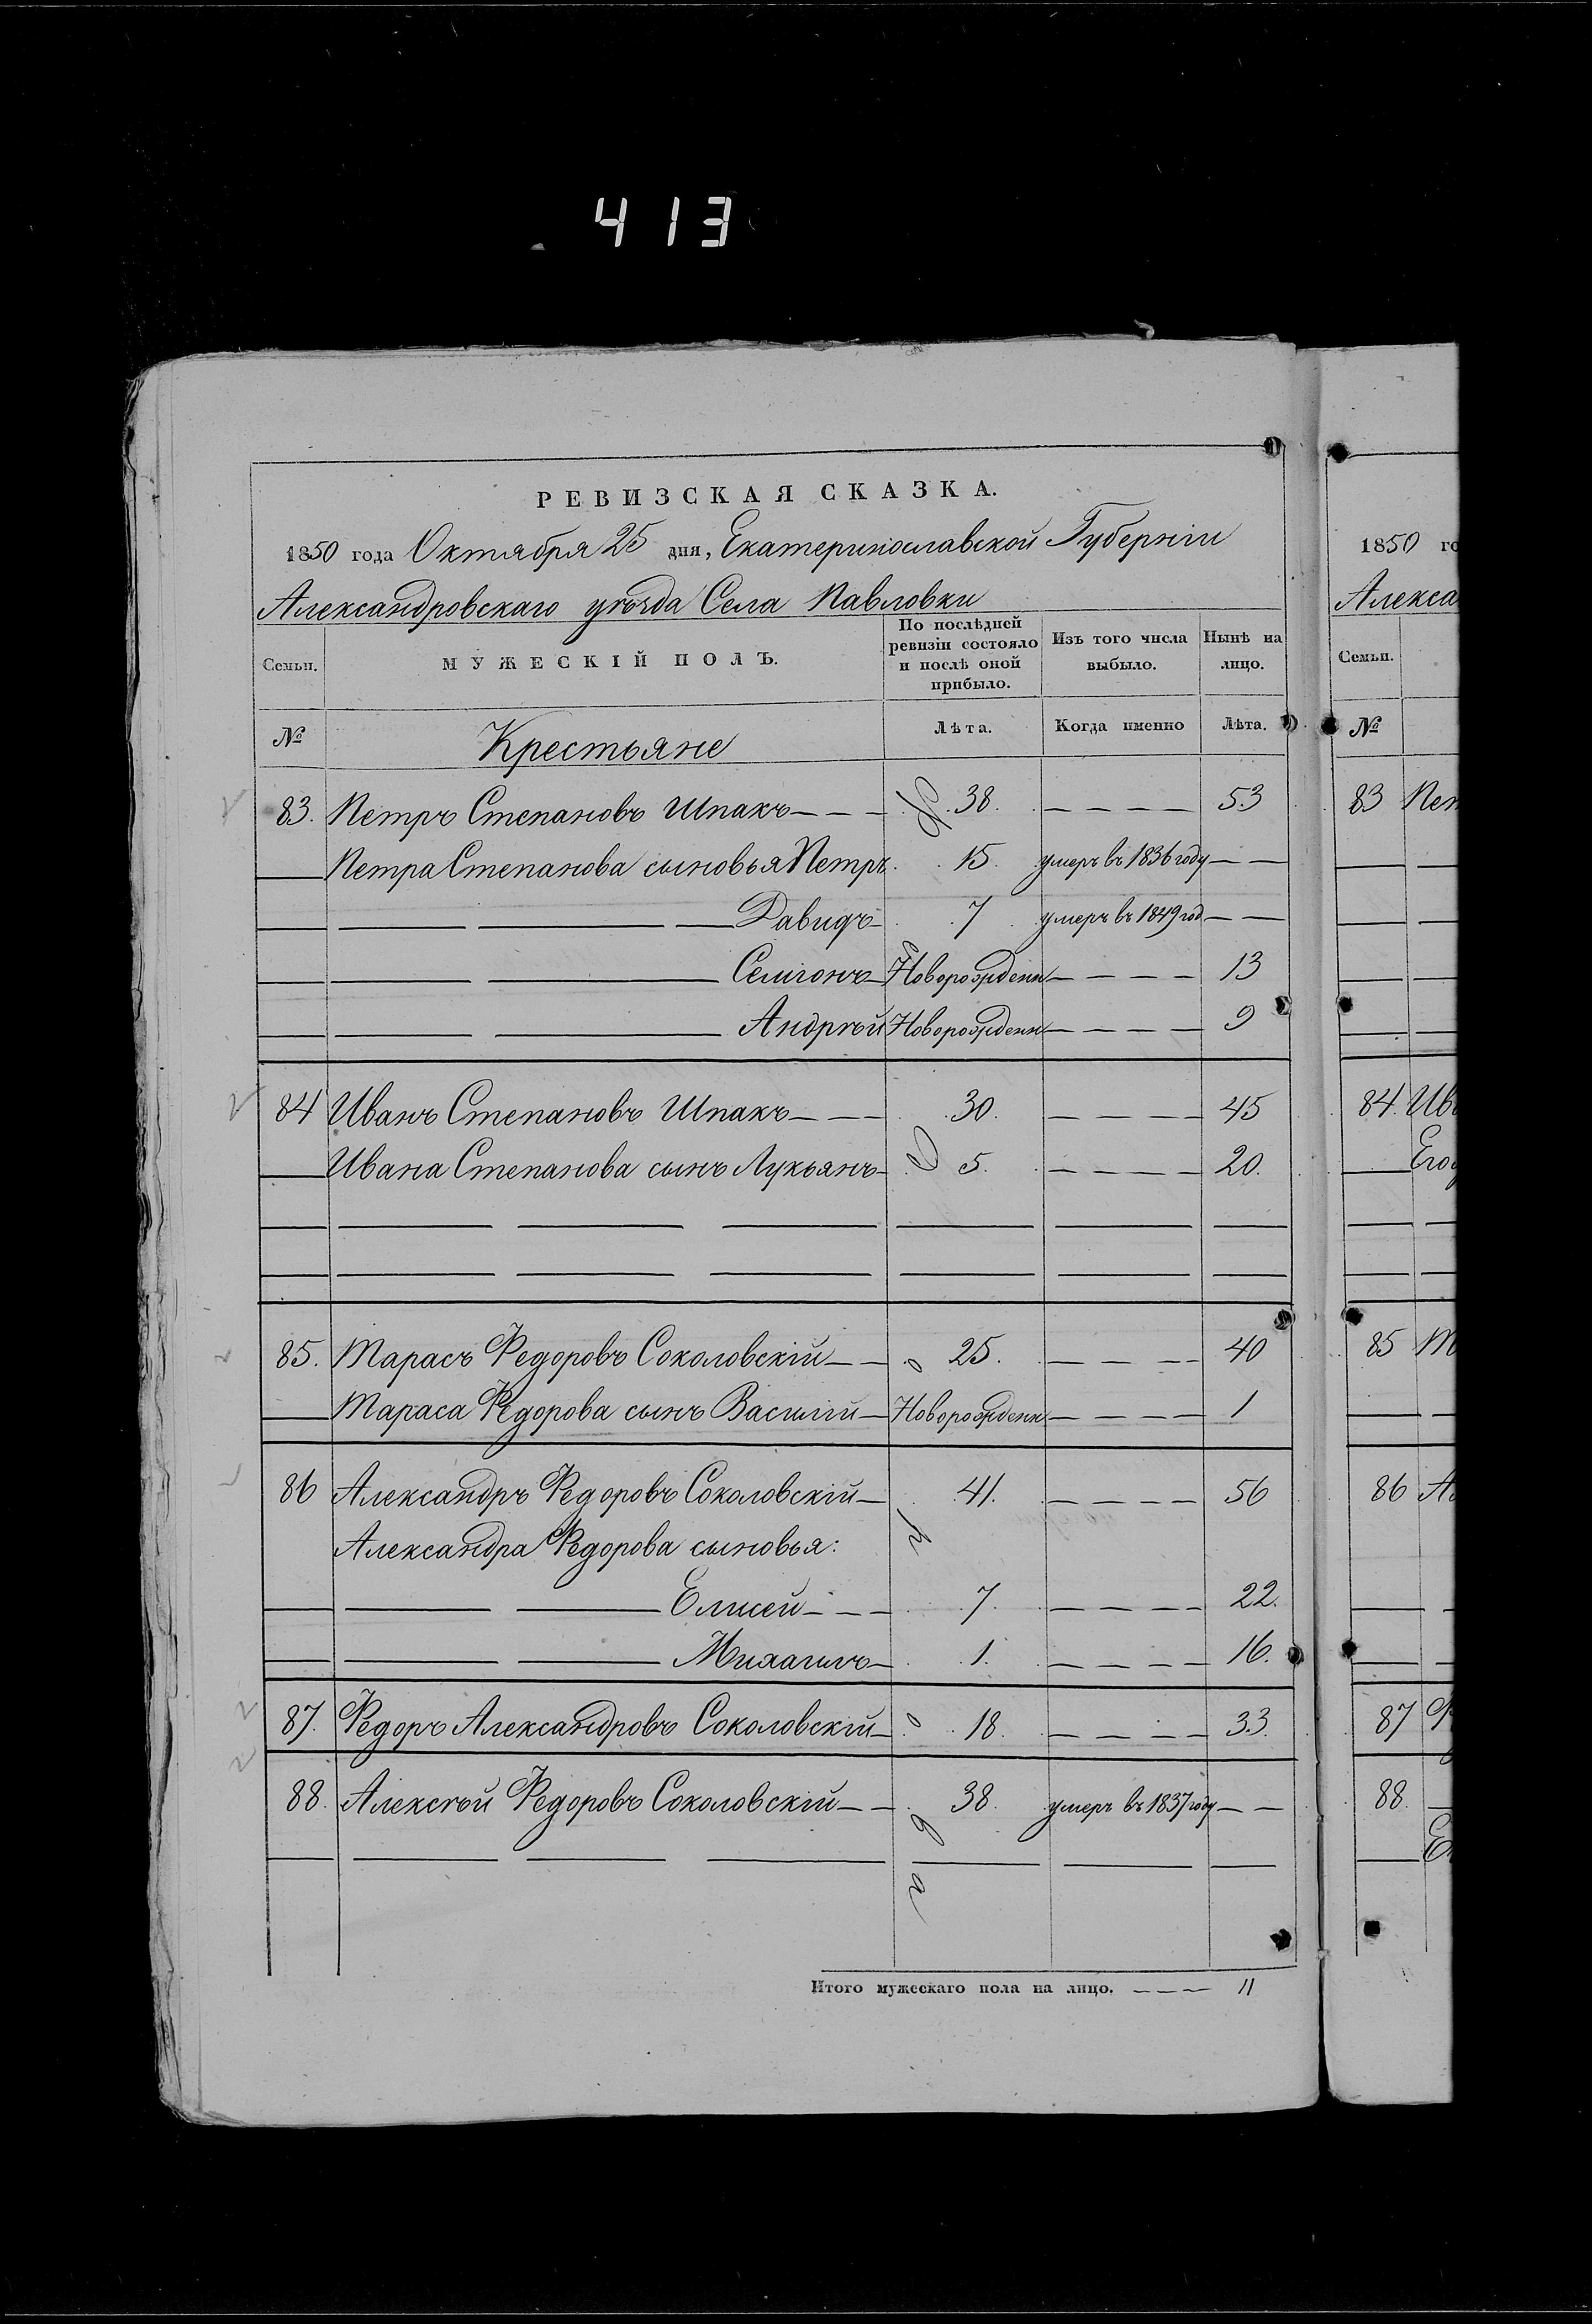 413
РЕВИЗСКАЯ СКАЗКА.
1850 года Октября 25 дня, Екатеринославской Губерніи
Александровскаго уѣзда Села Павловки
Семьи. МУЖЕСКІЙ ПОЛЪ. По послѣдней ревизіи состояло и послѣ оной прибыло. Изъ того числа выбыло. Нынѣ на лицо.
№ Крестьяне Лѣта. Когда именно Лѣта.
83. Петръ Степановъ Шпакъ 38. 53
Петра Степанова сыновья Петръ 15. умеръ въ 1836 году
Давидъ 7 умеръ въ 1849 год
Семіонъ Новорожденн 13
Андрѣй Новорожденн 9
84 Иванъ Степановъ Шпакъ 30. 45
Ивана Степанова сынъ Лукьянъ 5. 20.
85. Тарасъ Федоровъ Соколовскій 25. 40
Тараса Федорова сынъ Василій Новорожденн 1
86 Александръ Федоровъ Соколовскій 41. 56
Александра Федорова сыновья:
Елисей 7. 22.
Михаилъ 1. 16.
87. Федоръ Александровъ Соколовскій 18. 33.
88. Алексѣй Федоровъ Соколовскій 38. умеръ въ 1837 году
Итого мужескаго пола на лицо. 11
1850 го
Алекса
Семьи.
№
83 Пет
84. Ив
Его
85 Т
86 Ал
87 Ф
88.